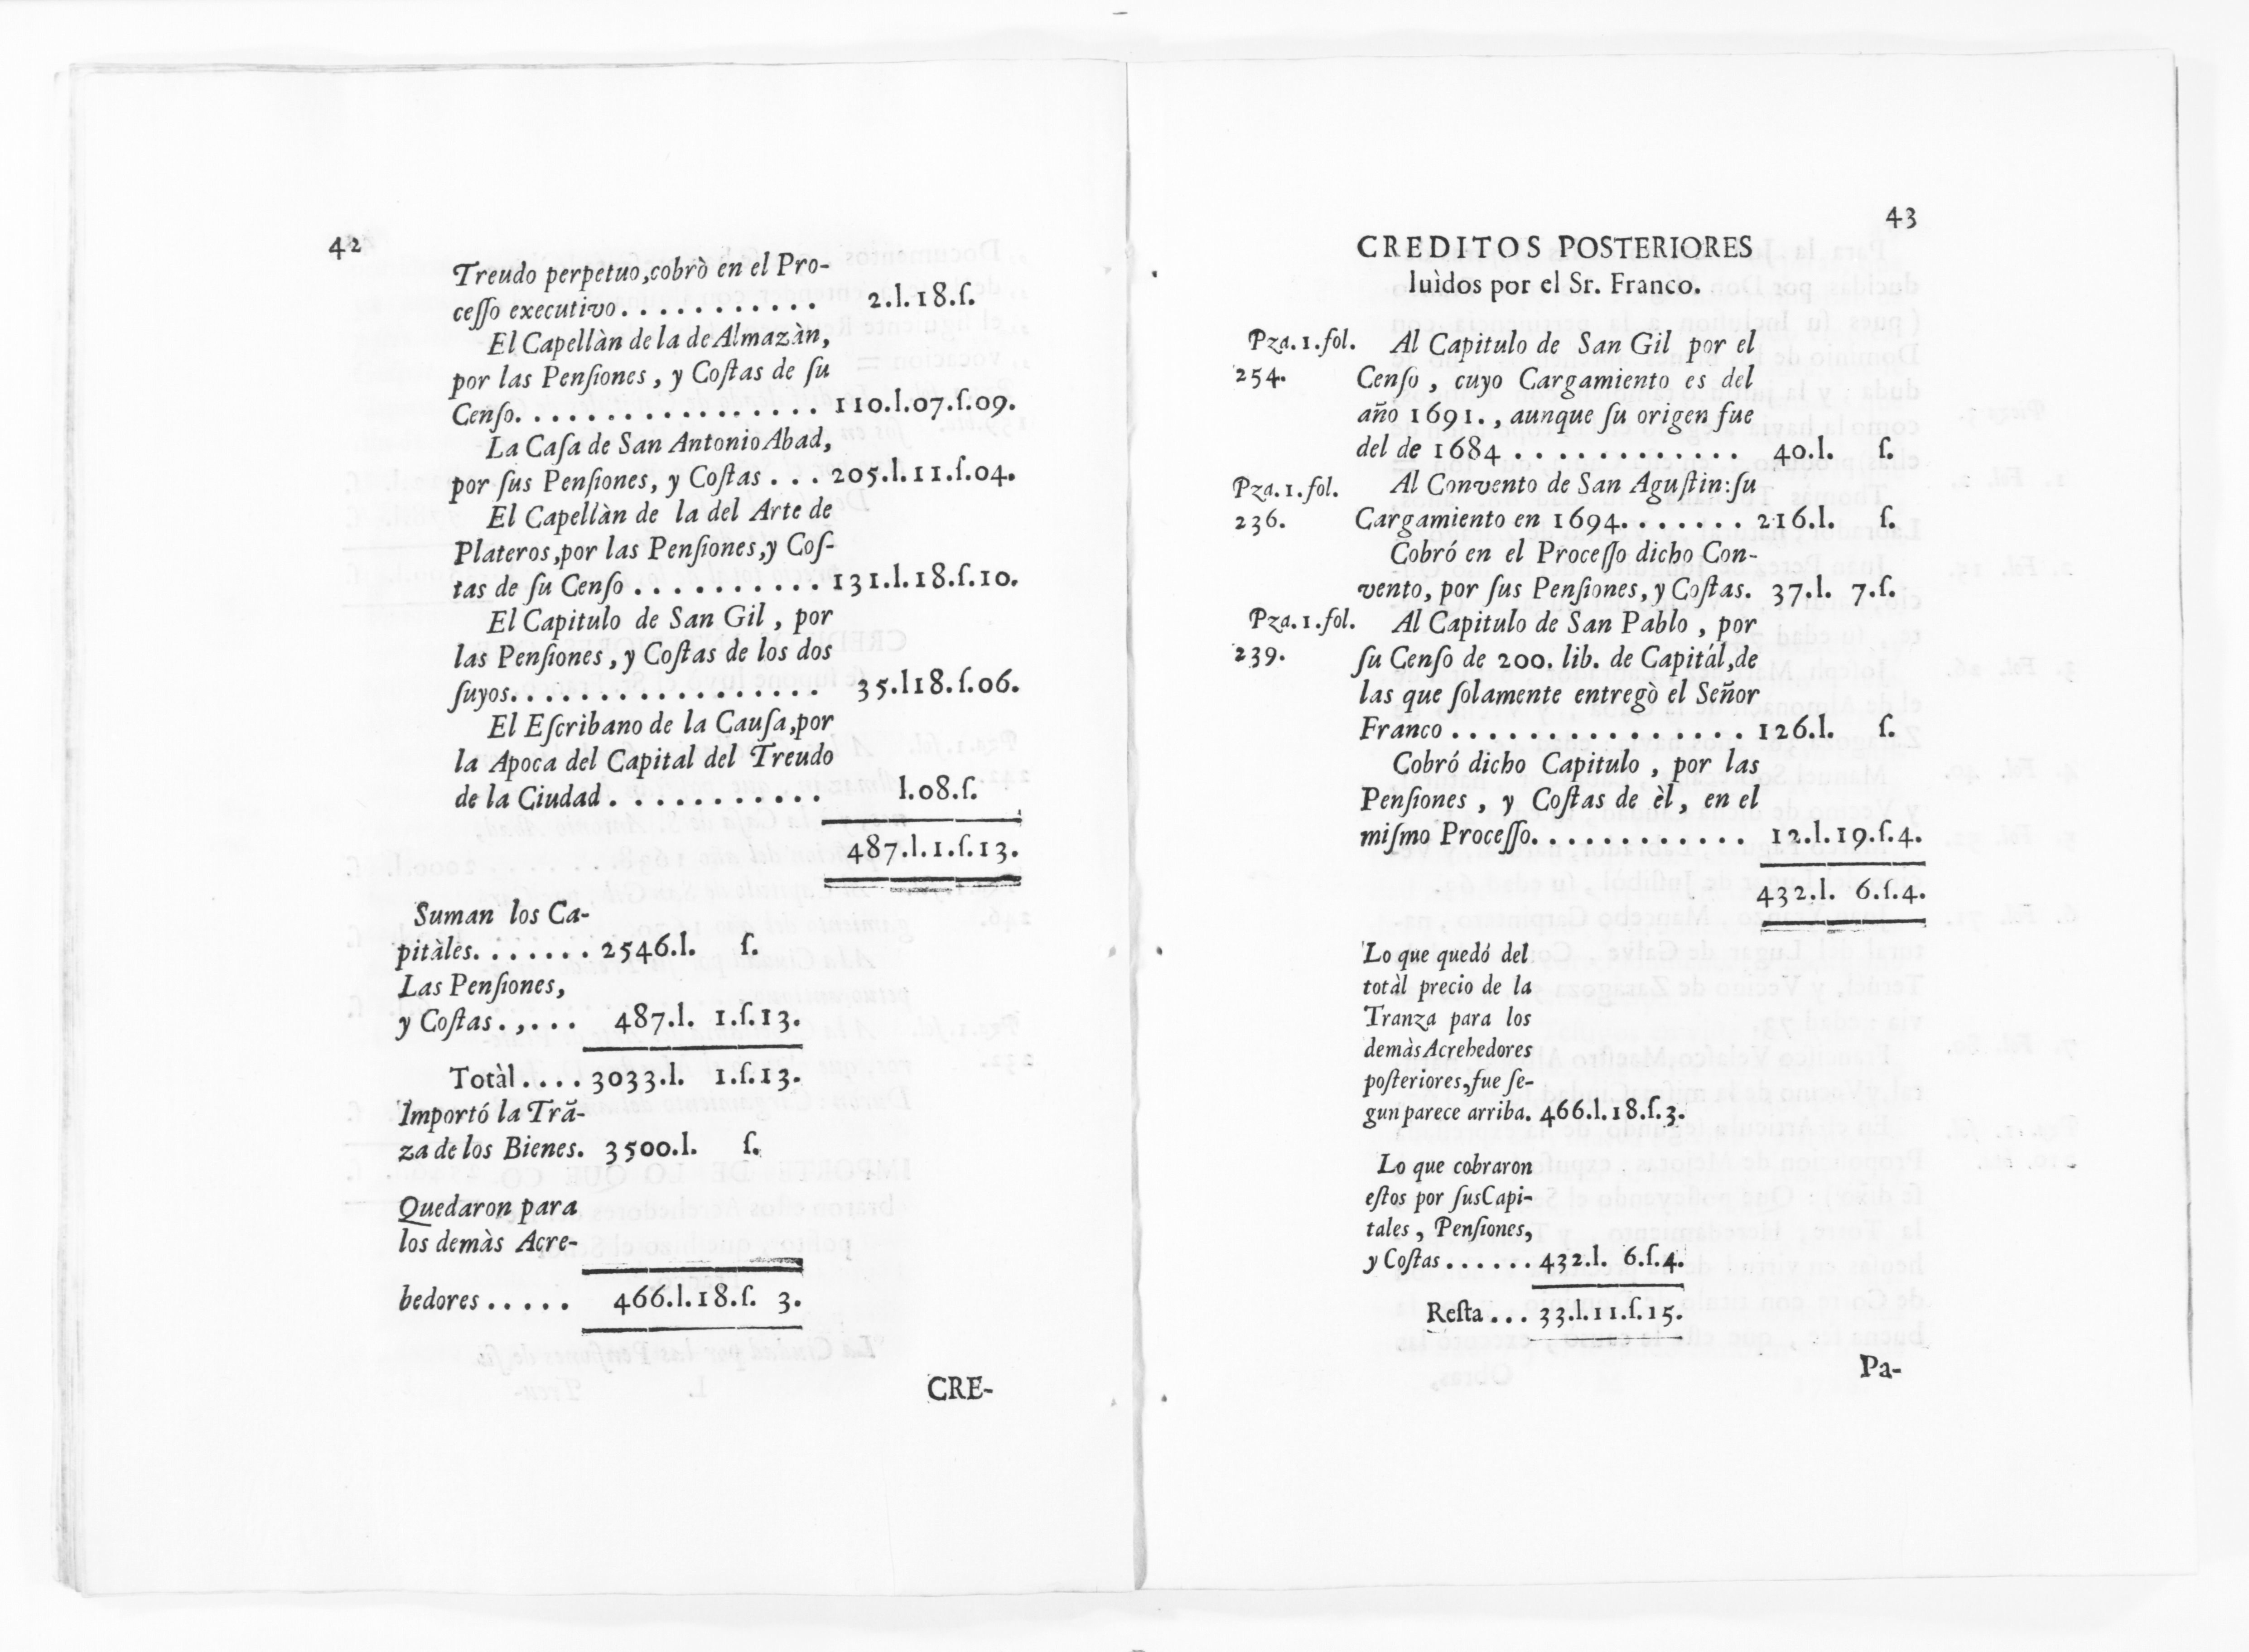 42
Treudo perpetuo,cobrò en el Pro-
ceſſo executivo........... 2.l.18.ſ.
El Capellàn de la de Almazàn,
por las Penſiones, y Coſtas de ſu
Cenſo................. 110.l.07.ſ.09.
La Caſa de San Antonio Abad,
por ſus Penſiones, y Coſtas... 205.l.11.ſ.04.
El Capellàn de la del Arte de
Plateros,por las Penſiones,y Coſ-
tas de ſu Cenſo.......... 131.l.18.ſ.10.
El Capitulo de San Gil, por
las Penſiones, y Coſtas de los dos
ſuyos................. 35.l18.ſ.06.
El Eſcribano de la Cauſa,por
la Apoca del Capital del Treudo
de la Ciudad........... l.08.ſ.
487.l.1.ſ.13.
Suman los Ca-
pitàles....... 2546.l. ſ.
Las Penſiones,
y Coſtas.,... 487.l. 1.ſ.13.
Totàl.... 3033.l. 1.ſ.13.
Importó la Trã-
za de los Bienes. 3500.l. ſ.
Quedaron para
los demàs Acre-
bedores..... 466.l.18.ſ. 3.
CRE-
43
CREDITOS POSTERIORES
luìdos por el Sr. Franco.
Pza.1.fol. Al Capitulo de San Gil por el
254. Cenſo, cuyo Cargamiento es del
año 1691., aunque ſu origen fue
del de 1684............ 40.l. ſ.
Pza.1.fol. Al Convento de San Aguſtin:ſu
236. Cargamiento en 1694....... 216.l. ſ.
Cobró en el Proceſſo dicho Con-
vento, por ſus Penſiones, y Coſtas. 37.l. 7.ſ.
Pza.1.fol. Al Capitulo de San Pablo, por
239. ſu Cenſo de 200. lib. de Capitál,de
las que ſolamente entregò el Señor
Franco............... 126.l. ſ.
Cobró dicho Capitulo, por las
Penſiones, y Coſtas de èl, en el
miſmo Proceſſo............ 12.l.19.ſ.4.
432.l. 6.ſ.4.
Lo que quedó del
totàl precio de la
Tranza para los
demàs Acrehedores
poſteriores,fue ſe-
gun parece arriba. 466.l.18.ſ.3.
Lo que cobraron
eſtos por ſus Capi-
tales, Penſiones,
y Coſtas...... 432.l. 6.ſ.4.
Reſta... 33.l.11.ſ.15.
Pa-